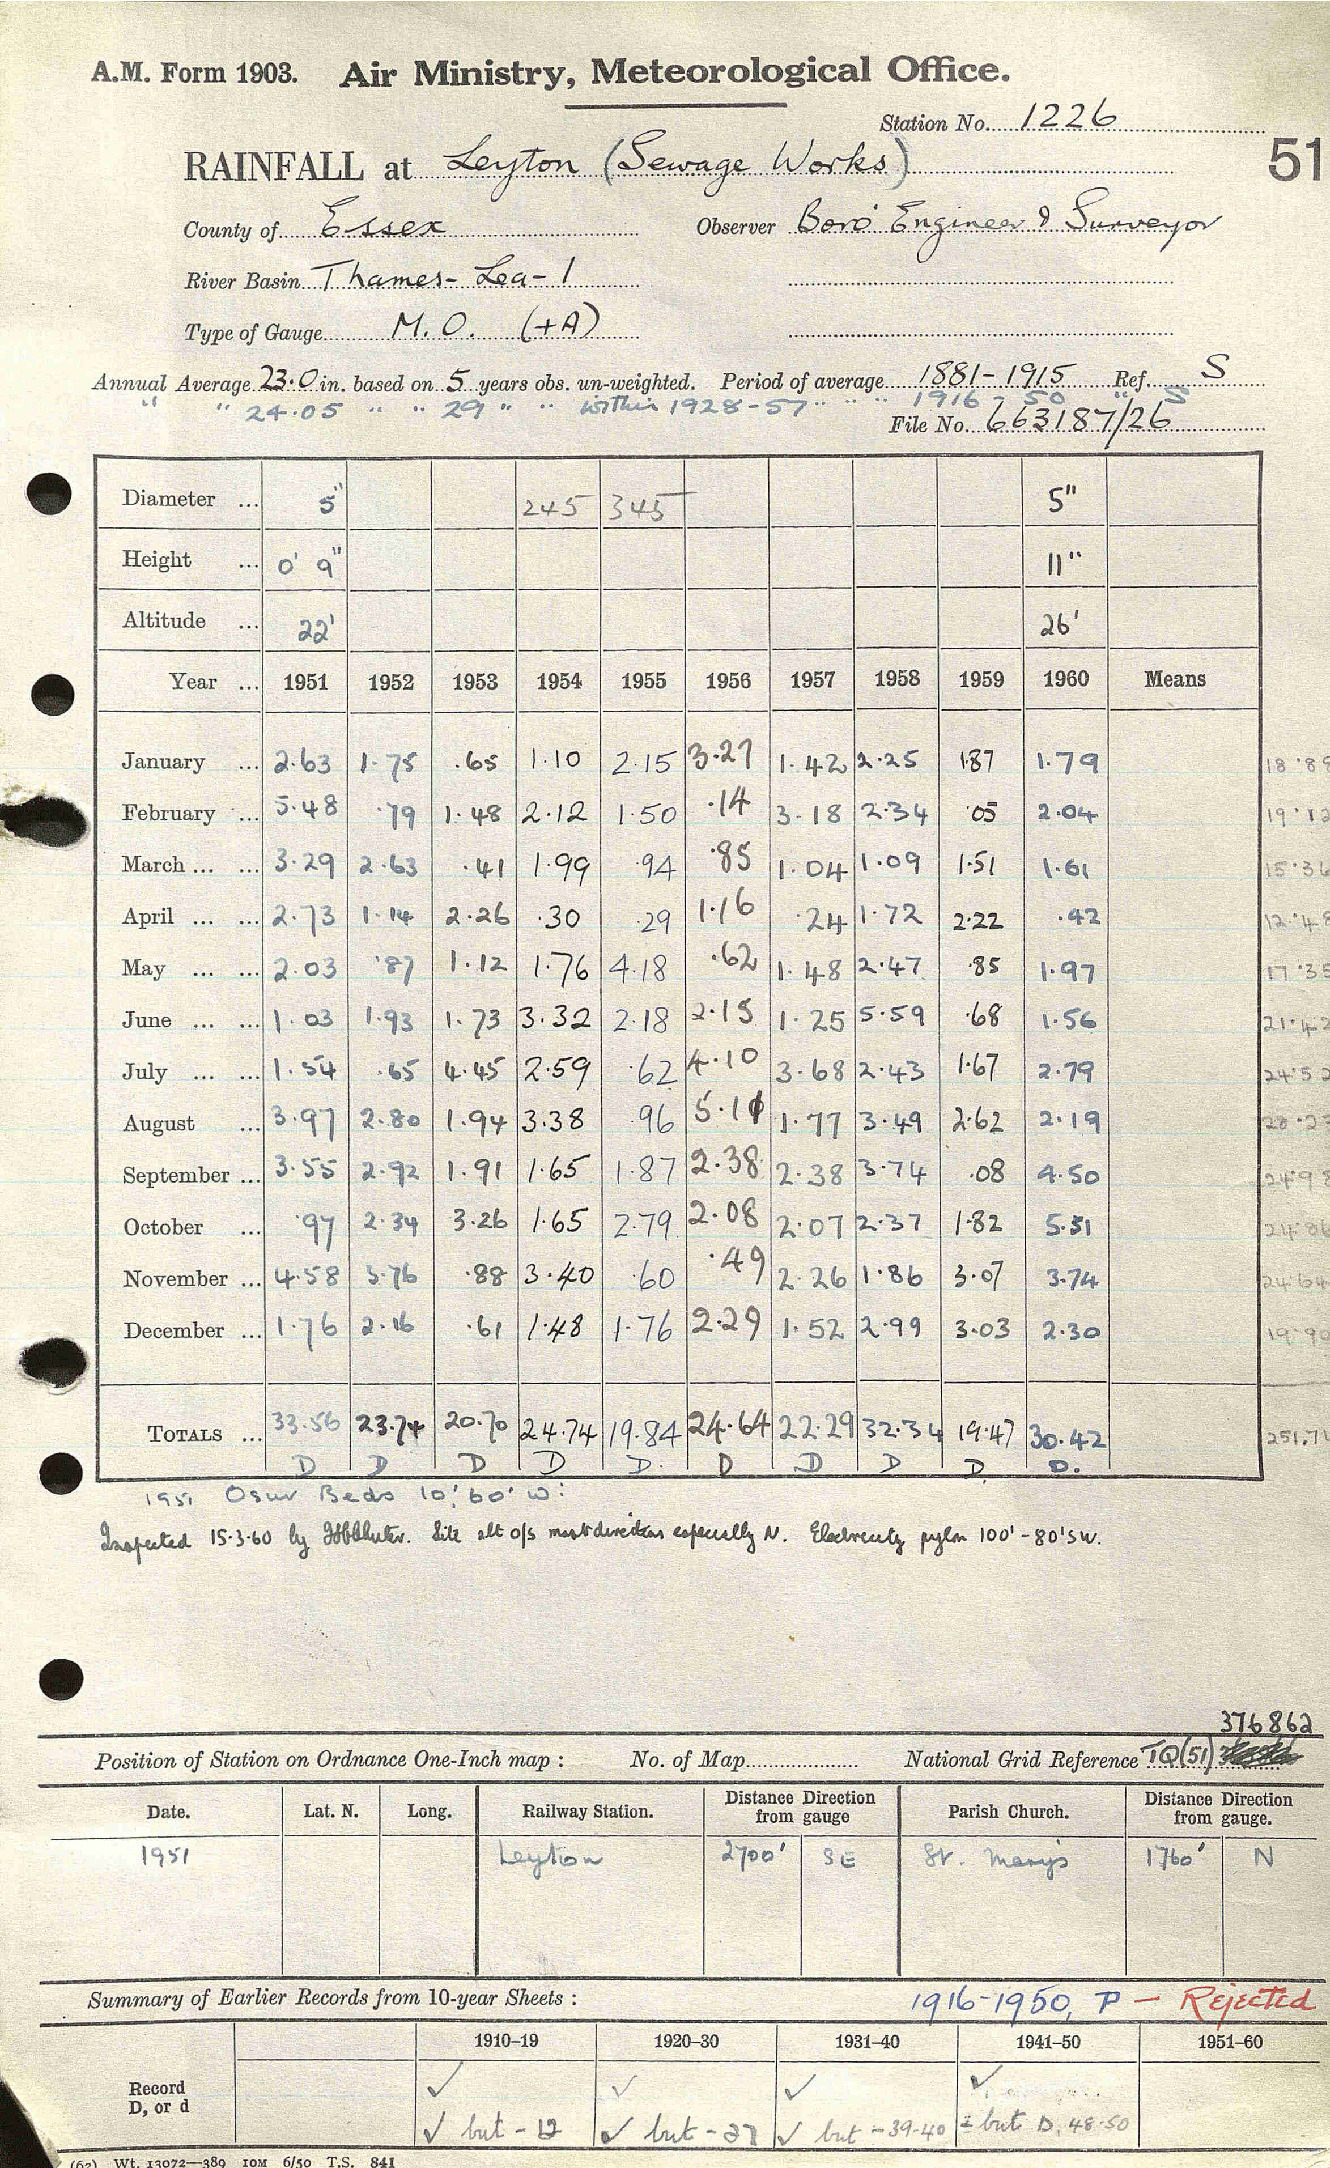 A.M. Form 1903. Air Ministry, Meteorological Office.
Station No. 1226
51
RAINFALL at Leyton (Sewage Works)
County of Essex Observer Boro' Engineer & Surveyor
River Basin Thames - Lea - 1
Type of Gauge M.O. (+A)
Annual Average 23.0 in. based on 5 years obs. un-weighted. Period of average 1881-1915 Ref. S
" " 24.05 " " 29 " " within 1928-57 " " " 1916-50 " S
File No. 663187/26
Diameter ... 5" 245 345 5"
Height ... 0' 9" 11"
Altitude ... 22' 26'
Year ... 1951 1952 1953 1954 1955 1956 1957 1958 1959 1960 Means
January ... 2.63 1.75 .65 1.10 2.15 3.27 1.42 2.25 1.87 1.79 18.89
February ... 5.48 .79 1.48 2.12 1.50 .14 3.18 2.34 .05 2.04 19.12
March ... ... 3.29 2.63 .41 1.99 .94 .85 1.04 1.09 1.51 1.61 15.36
April ... ... 2.73 1.14 2.26 .30 .29 1.16 .24 1.72 2.22 .42 12.48
May ... ... 2.03 .87 1.12 1.76 4.18 .62 1.48 2.47 .85 1.97 17.35
June ... ... 1.03 1.93 1.73 3.32 2.18 2.15 1.25 5.59 .68 1.56 21.42
July ... ... 1.54 .65 4.45 2.59 .62 4.10 3.68 2.43 1.67 2.79 24.52
August ... 3.97 2.80 1.94 3.38 .96 5.11 1.77 3.49 2.62 2.19 28.23
September ... 3.55 2.92 1.91 1.65 1.87 2.38 2.38 3.74 .08 4.50 24.98
October ... .97 2.34 3.26 1.65 2.79 2.08 2.07 2.37 1.82 5.51 24.86
November ... 4.58 3.76 .88 3.40 .60 .49 2.26 1.86 3.07 3.74 24.64
December ... 1.76 2.16 .61 1.48 1.76 2.29 1.52 2.99 3.03 2.30 19.90
TOTALS ... 33.56 23.74 20.70 24.74 19.84 24.64 22.29 32.34 19.47 30.42 251.74
D D D D D. D D D D D.
1951 Osier Beds 10', 60' W:
Inspected 15.3.60 by Site alt o/s most directions especially N. Electricity pylon 100' - 80' SW.
376862
Position of Station on Ordnance One-Inch map : No. of Map National Grid Reference TQ(51)
Date. Lat. N. Long. Railway Station. Distance Direction from gauge Parish Church. Distance Direction from gauge.
1951 Leyton 2700' SE St. Mary's 1760' N
Summary of Earlier Records from 10-year Sheets : 1916-1950, P - Rejected
1910–19 1920–30 1931–40 1941–50 1951–60
Record D, or d ✓ ✓ ✓ ✓
✓ but - 12 ✓ but - 27 ✓ but - 39-40 but D, 48-50
(62) Wt. 13072—389 10M 6/50 T.S. 841